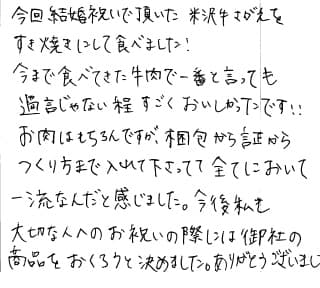 今回結婚祝いで頂いた 米沢牛さがえを
すき焼きにして食べました!
今まで食べてきた牛肉で一番と言っても
過言じゃない程 すごくおいしかったです!!
お肉はもちろんですが、梱包から証から
つくり方まで入れて下さってて 全てにおいて
一流なんだと感じました。今後私も
大切な人へのお祝いの際には御社の
商品をおくろうと決めました。ありがとうございまし